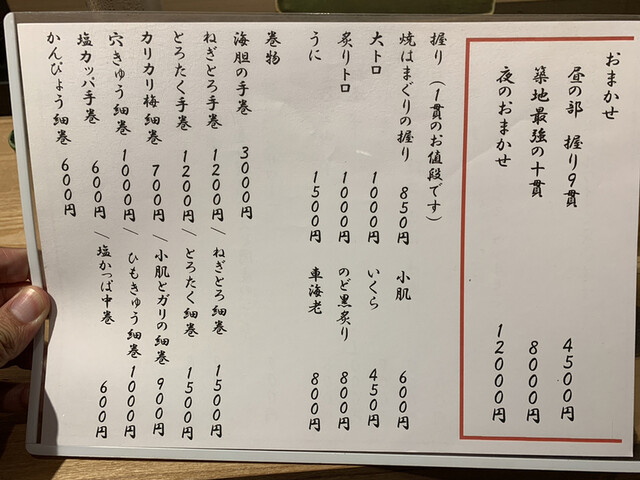 おまかせ
昼の部 握り9貫 4500円
築地最強の十貫 8000円
夜のおまかせ 12000円
握り（1貫のお値段です）
焼はまぐりの握り 850円 小肌 600円
大トロ 1000円 いくら 450円
炙りトロ 1000円 のど黒炙り 800円
うに 1500円 車海老 800円
巻物
海胆の手巻 3000円
ねぎとろ手巻 1200円／ねぎとろ細巻 1500円
とろたく手巻 1200円／とろたく細巻 1500円
カリカリ梅細巻 700円／小肌とガリの細巻 900円
穴きゅう細巻 1000円／ひもきゅう細巻 1000円
塩カッパ手巻 600円／塩かっぱ中巻 600円
かんぴょう細巻 600円